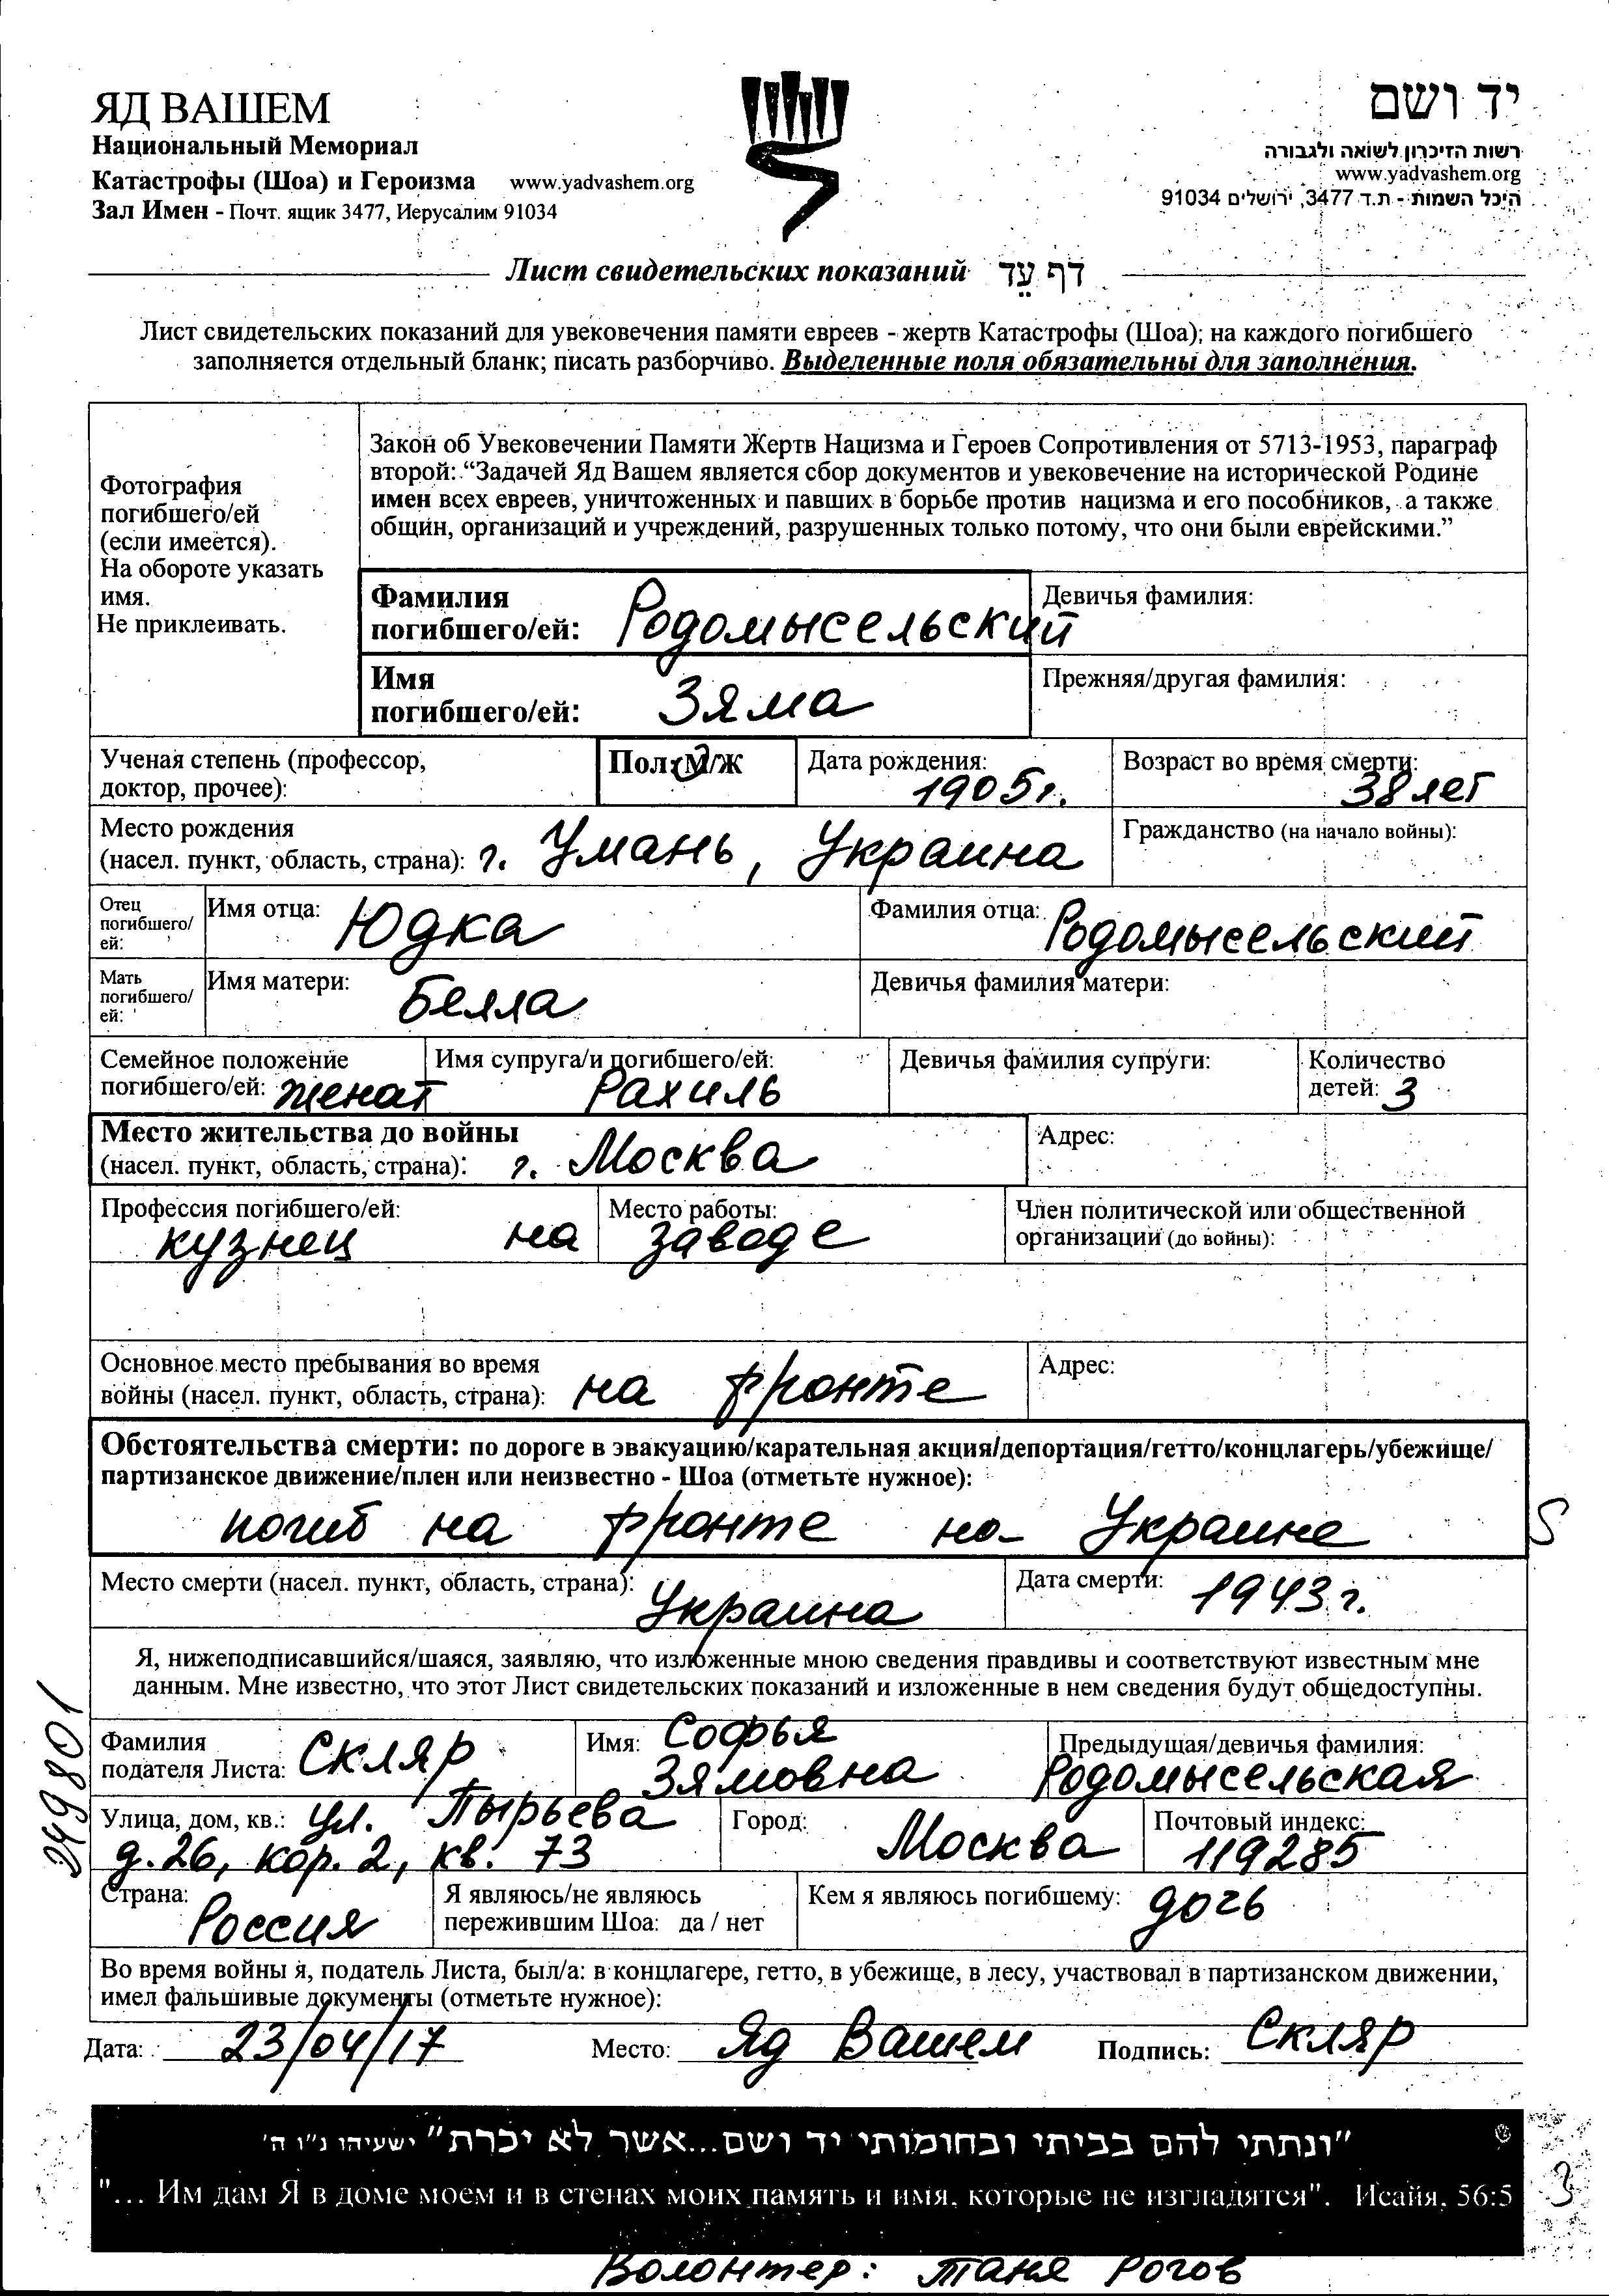 ЯД ВАШЕМ
Национальный Мемориал
Катастрофы (Шоа) и Героизма www.yadvashem.org
Зал Имен - Почт. ящик 3477, Иерусалим 91034
יד ושם
רשות הזיכרון לשואה ולגבורה
www.yadvashem.org
היכל השמות - ת.ד 3477, ירושלים 91034
Лист свидетельских показаний דף עֵד
Лист свидетельских показаний для увековечения памяти евреев - жертв Катастрофы (Шоа); на каждого погибшего
заполняется отдельный бланк; писать разборчиво. Выделенные поля обязательны для заполнения.
Фотография
погибшего/ей
(если имеется).
На обороте указать
имя.
Не приклеивать.
Закон об Увековечении Памяти Жертв Нацизма и Героев Сопротивления от 5713-1953, параграф
второй: “Задачей Яд Вашем является сбор документов и увековечение на исторической Родине
имен всех евреев, уничтоженных и павших в борьбе против нацизма и его пособников, а также
общин, организаций и учреждений, разрушенных только потому, что они были еврейскими.”
Фамилия
погибшего/ей: Родомысельский
Девичья фамилия:
Имя
погибшего/ей: Зяма
Прежняя/другая фамилия:
Ученая степень (профессор,
доктор, прочее):
Пол: М/Ж
Дата рождения:
1905г.
Возраст во время смерти:
38 лет
Место рождения
(насел. пункт, область, страна): г. Умань, Украина
Гражданство (на начало войны):
Отец
погибшего/
ей:
Имя отца: Юдка
Фамилия отца: Родомысельский
Мать
погибшего/
ей:
Имя матери: Белла
Девичья фамилия матери:
Семейное положение
погибшего/ей: женат
Имя супруга/и погибшего/ей:
Рахиль
Девичья фамилия супруги:
Количество
детей: 3
Место жительства до войны
(насел. пункт, область, страна): г. Москва
Адрес:
Профессия погибшего/ей:
кузнец на
Место работы:
заводе
Член политической или общественной
организации (до войны):
Основное место пребывания во время
войны (насел. пункт, область, страна): на фронте
Адрес:
Обстоятельства смерти: по дороге в эвакуацию/карательная акция/депортация/гетто/концлагерь/убежище/
партизанское движение/плен или неизвестно - Шоа (отметьте нужное):
погиб на фронте на Украине
S
Место смерти (насел. пункт, область, страна): Украина
Дата смерти: 1943 г.
Я, нижеподписавшийся/шаяся, заявляю, что изложенные мною сведения правдивы и соответствуют известным мне
данным. Мне известно, что этот Лист свидетельских показаний и изложенные в нем сведения будут общедоступны.
249801
Фамилия
подателя Листа: Скляр
Имя: Софья
Зямовна
Предыдущая/девичья фамилия:
Родомысельская
Улица, дом, кв.: ул. Пырьева
д.26, кор. 2, кв. 73
Город:
Москва
Почтовый индекс:
119285
Страна:
Россия
Я являюсь/не являюсь
пережившим Шоа: да / нет
Кем я являюсь погибшему: дочь
Во время войны я, податель Листа, был/а: в концлагере, гетто, в убежище, в лесу, участвовал в партизанском движении,
имел фальшивые документы (отметьте нужное):
Дата: 23/04/17 Место: Яд Вашем Подпись: Скляр
"ונתתי להם בביתי ובחומותי יד ושם...אשר לא יכרת" ישעיהו נ"ו ה'
"... Им дам Я в доме моем и в стенах моих память и имя, которые не изгладятся". Исайя, 56:5
3
Волонтер: Таня Рогов